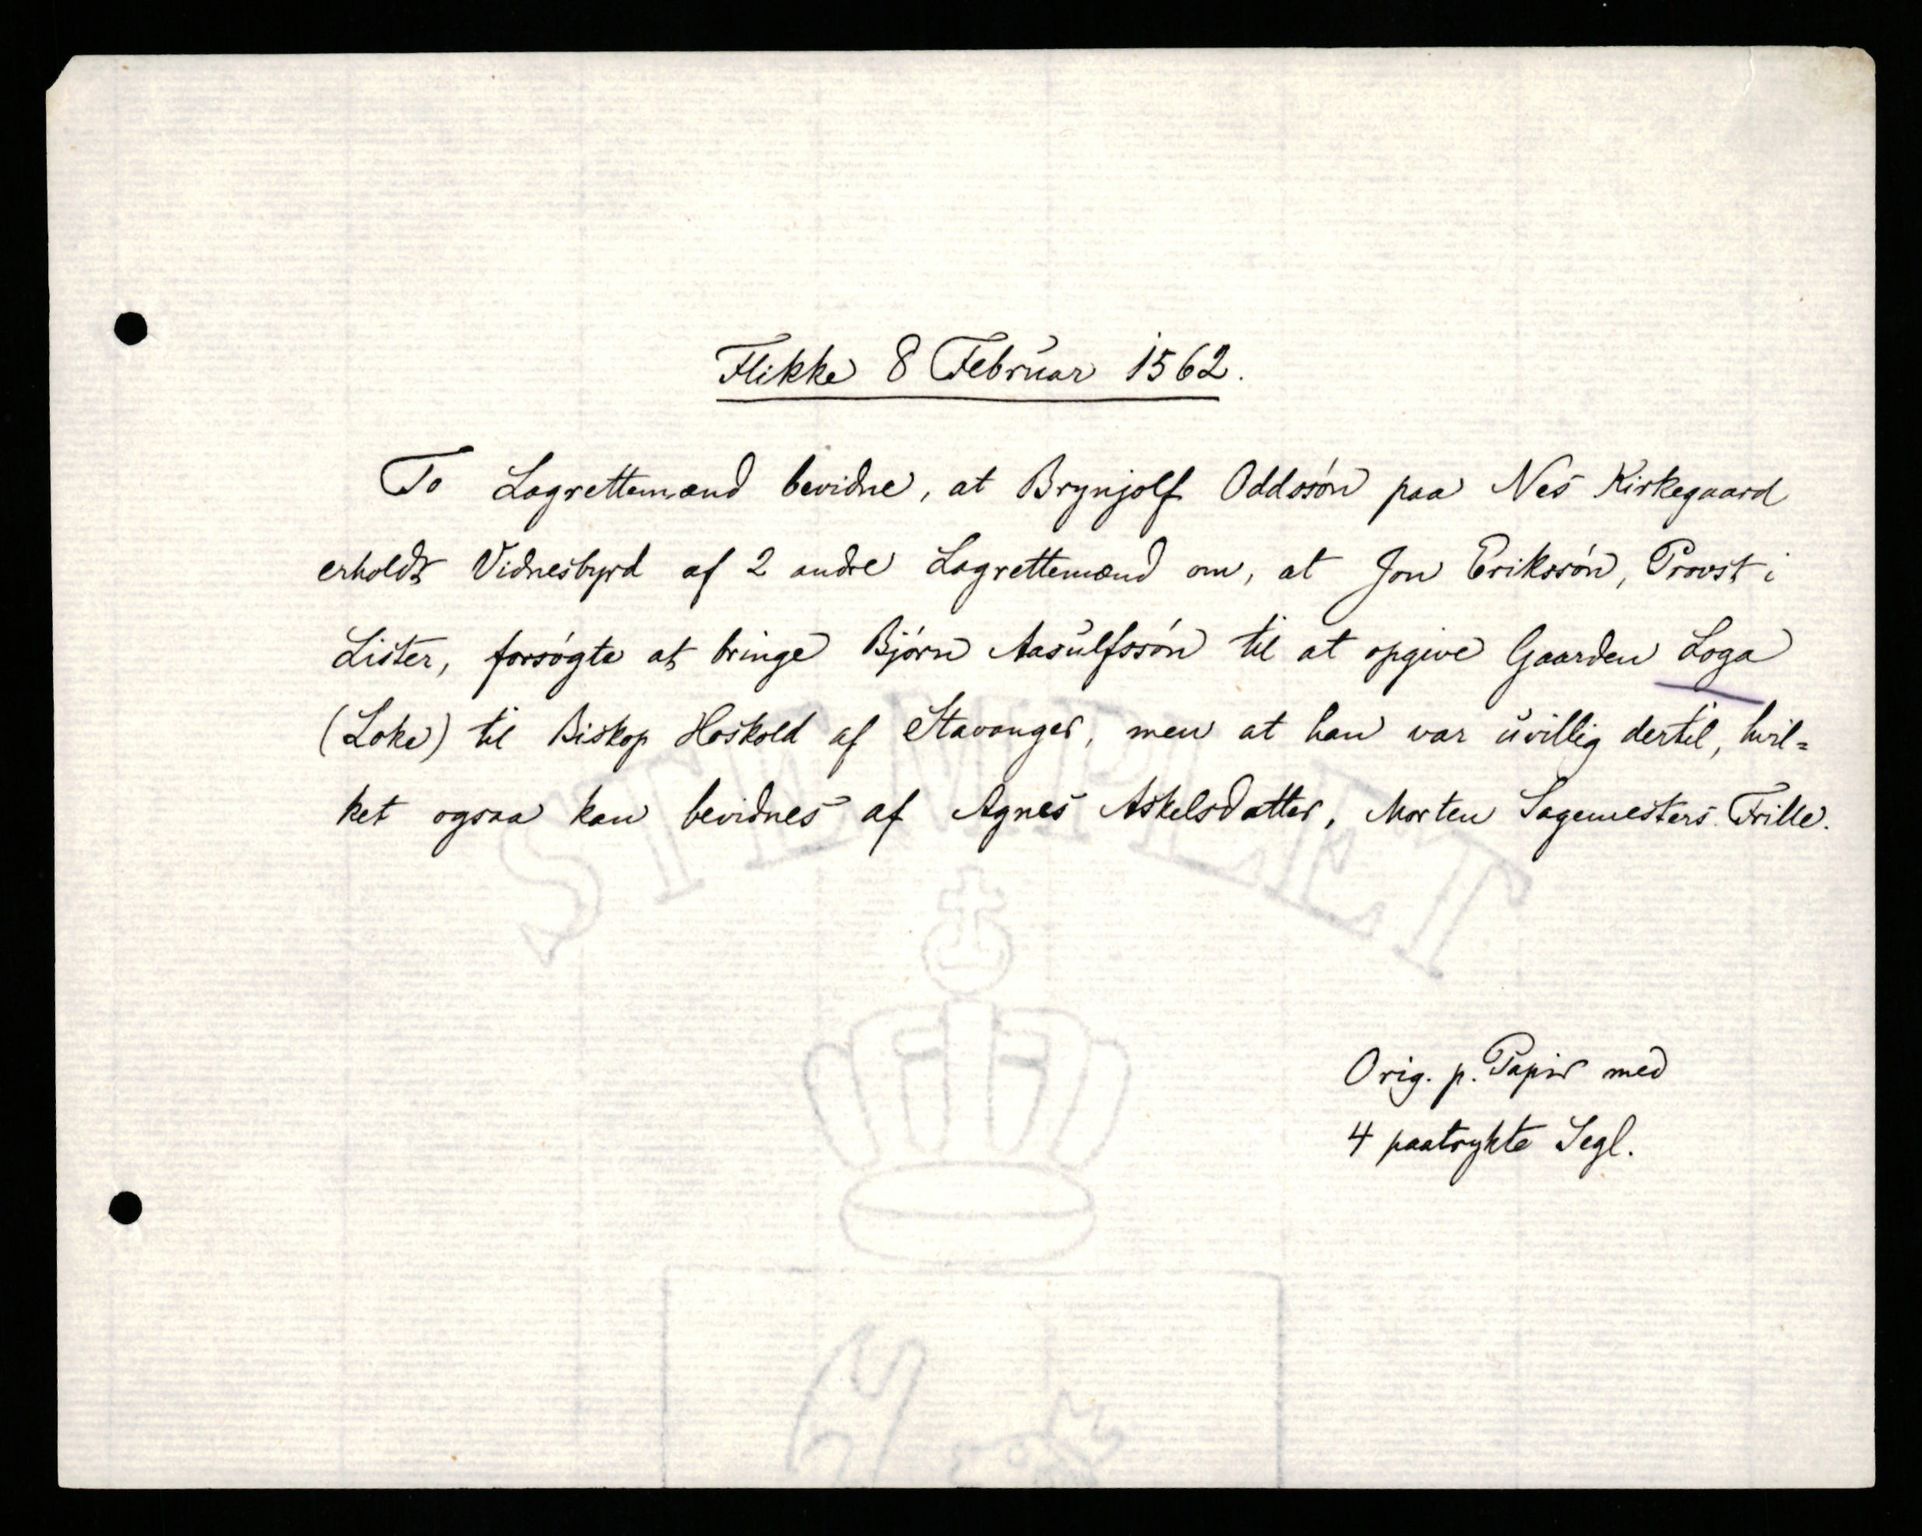 Flikke 8 Februar 1562.
To Lagrettemænd bevidne, at Brynjolf Oddssøn paa Nes Kirkegaard
erholdt Vidnesbyrd af 2 andre Lagrettemænd om, at Jon Erikssøn, Provst i
Lister, forsøgte at bringe Bjørn Aasulfssøn til at opgive Gaarden Loga
(Loke) til Biskop Hoskold af Stavanger, men at han var uvillig dertil, hvil=
ket ogsaa kan bevidnes af Agnes Askelsdatter, Morten Sagemesters Frille.
STEMPLET
Orig. p. Papir med
4 paatrykte Segl.